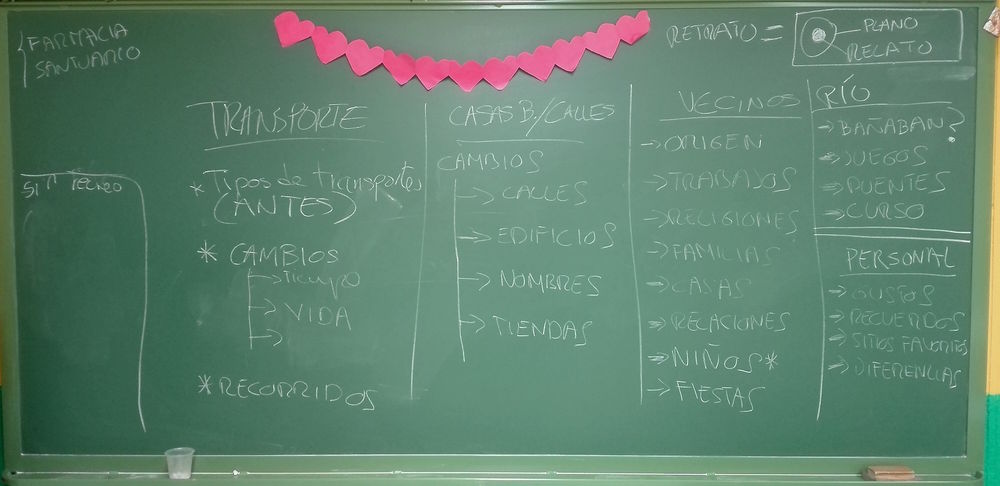 FARMACIA
SANTUARIO
RETRATO =
PLANO
RELATO
TRANSPORTE
* Tipos de transportes
(ANTES)
* CAMBIOS
→ Tiempo
→ VIDA
→
* RECORRIDOS
CASAS B./CALLES
CAMBIOS
→ CALLES
→ EDIFICIOS
→ NOMBRES
→ TIENDAS
VECINOS
→ ORIGEN
→ TRABAJOS
→ RELIGIONES
→ FAMILIAS
→ CASAS
→ RELACIONES
→ NIÑOS*
→ FIESTAS
RÍO
→ BAÑABAN?
→ JUEGOS
→ PUENTES
→ CURSO
PERSONAL
→ GUSTOS
→ RECUERDOS
→ SITIOS FAVORITOS
→ DIFERENCIAS